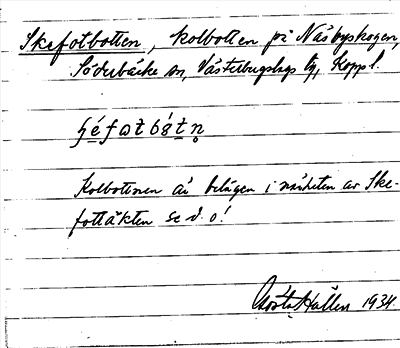 Skefotbotten, kolbotten på Näsbyskogen,
Söderbärke sn, Västerbergslags tg, Koppl.
Kolbottnen är belägen i närheten av Ske-
fottäkten se d. o!
Gösta Hallen 1934.